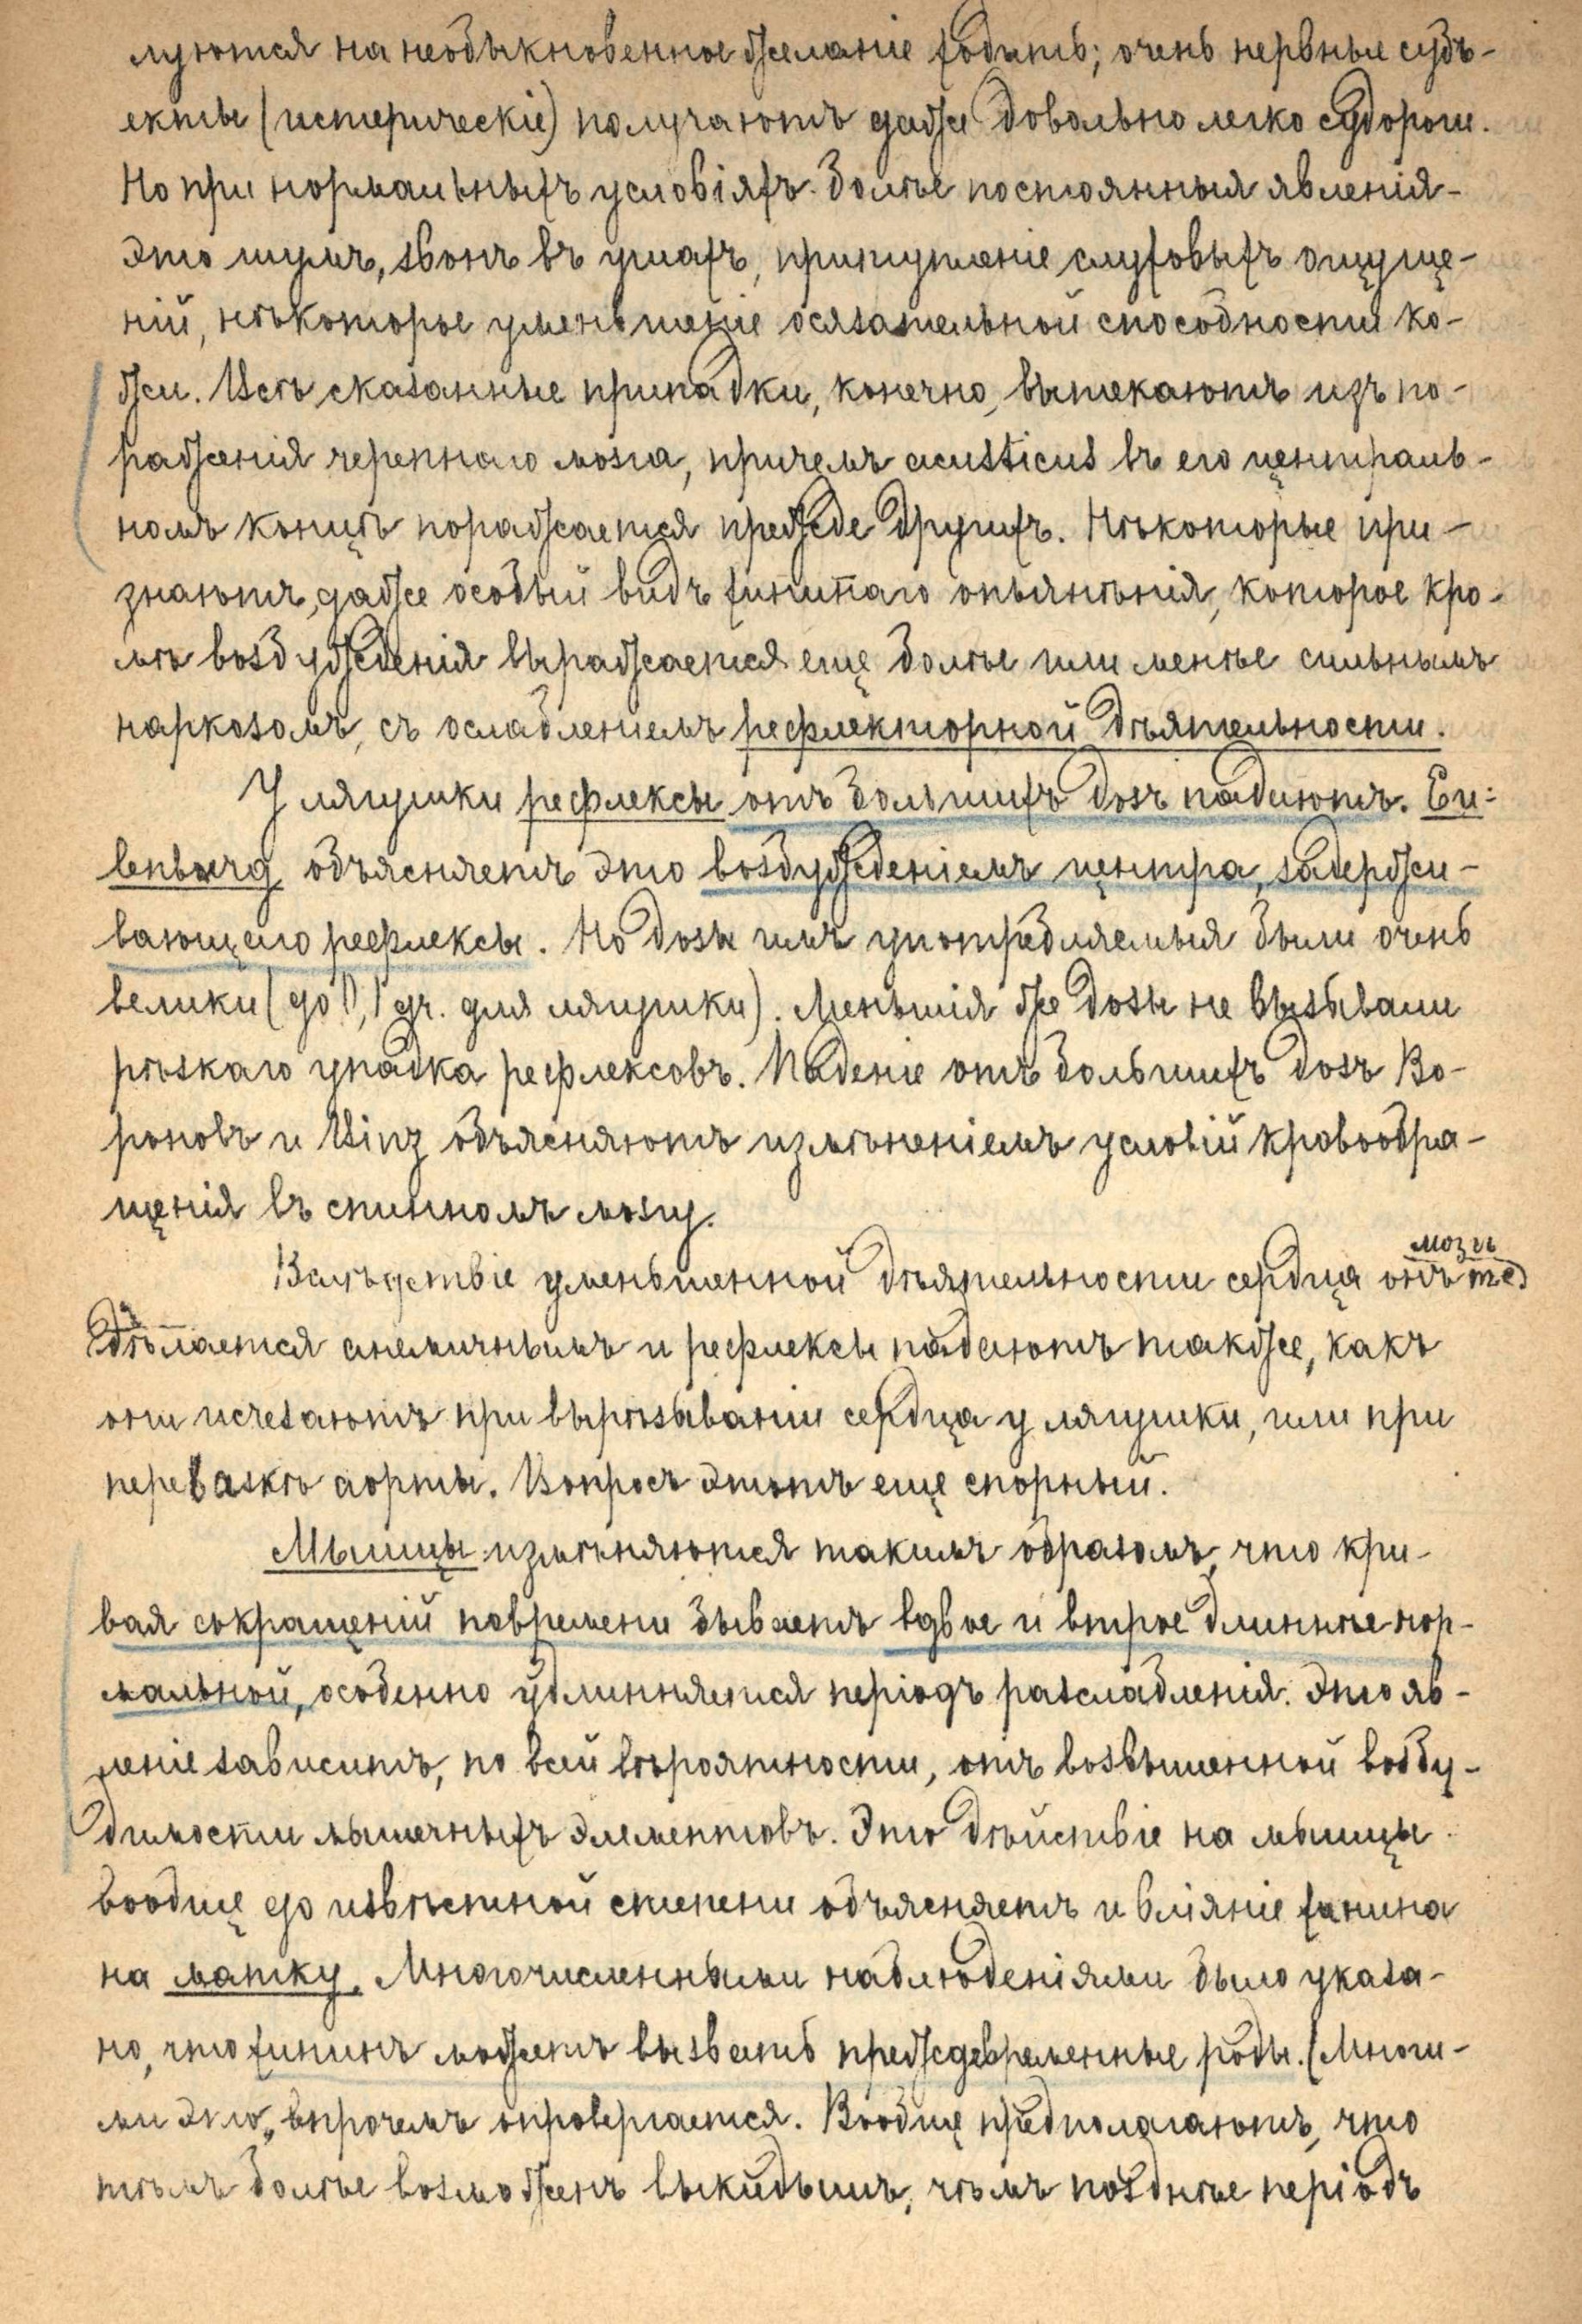 луются на необыкновенное желаніе ходить; очень нервные субъ-
екты (истерическіе) получаютъ даже довольно легко судороги.
Но при нормальныхъ условіяхъ болѣе постоянныя явленія-
это шумъ, звонъ въ ушахъ, притупленіе слуховыхъ ощуще-
ній, нѣкоторое уменьшеніе осязательной способности ко-
жи. Всѣ сказанные припадки, конечно, вытекаютъ изъ по-
раженія черепнаго мозга, причемъ acusticus въ его централь-
номъ концѣ поражается прежде другихъ. Нѣкоторые при-
знаютъ, даже особый видъ хиннаго опьянѣнія, которое кро-
мѣ возбужденія выражается еще болѣе или менѣе сильнымъ
наркозомъ, съ ослабленіемъ рефлекторной дѣятельности.
У лягушки рефлексы отъ большихъ дозъ падаютъ. Eu:
lenburg объясняетъ это возбужденіемъ центра, задержи-
вающаго рефлексы. Но дозы имъ употребляемыя были очень
велики (до 0,1 gr. для лягушки). Меньшія же дозы не вызывали
рѣзкаго упадка рефлексовъ. Паденіе отъ большихъ дозъ Во-
роновъ и Binz объясняютъ измѣненіемъ условій кровообра-
щенія въ спинномъ мозгу.
Вслѣдствіе уменьшенной дѣятельности сердца онъ мозгъ
дѣлается анемичнымъ и рефлексы падаютъ также, какъ
они исчезаютъ при вырѣзываніи сердца у лягушки, или при
перевязкѣ аорты. Вопросъ этотъ еще спорный.
Мышцы измѣняются такимъ образомъ, что кри-
вая сокращеній повремени бываетъ вдвое и втрое длиннѣе нор-
мальной, особенно удлинняется періодъ разслабленія. Это яв-
леніе зависитъ, по всей вѣроятности, отъ возвышенной возбу-
димости мышечныхъ элементовъ. Это дѣйствіе на мышцы
вообще до извѣстной степени объясняетъ и вліяніе хинина
на матку. Многочисленными наблюденіями было указа-
но, что хининъ можетъ вызвать преждевременные роды. (Многи-
ми это, впрочемъ опровергается. Вообще предполагаютъ, что
тѣмъ болѣе возможенъ выкидышъ, чѣмъ позднѣе періодъ